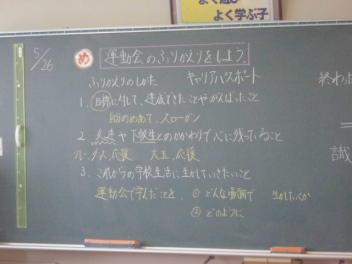 よく学ぶ子
5/26
め 運動会のふりかえりをしよう
ふりかえりのしかた キャリアパスポート
1、目標に対して、達成できたことやがんばったこと
スローガン
2、友達や下級生とのかかわりで心に残っていること
応援
3、これからの学校生活に生かしていきたいこと
運動会で学んだことを、① どんな場面で 生かしていくか
② どのように
終わっ
識